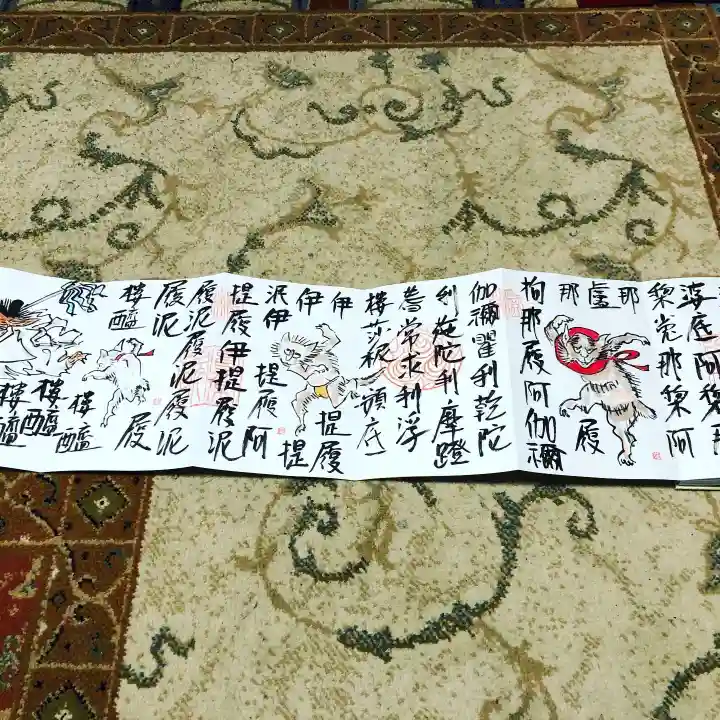 婆底阿黎那
黎㝹那黎阿
那
盧
履
那
拘那履阿伽禰
伽禰瞿利乾陀
利旃陀利摩蹬
耆常求利浮
樓莎柅頞底
伊
提履
伊
提
泯伊
提履阿
提履伊提履泥
履泥履泥履泥
履泥
履
樓醯
樓醯
樓醯
樓醯